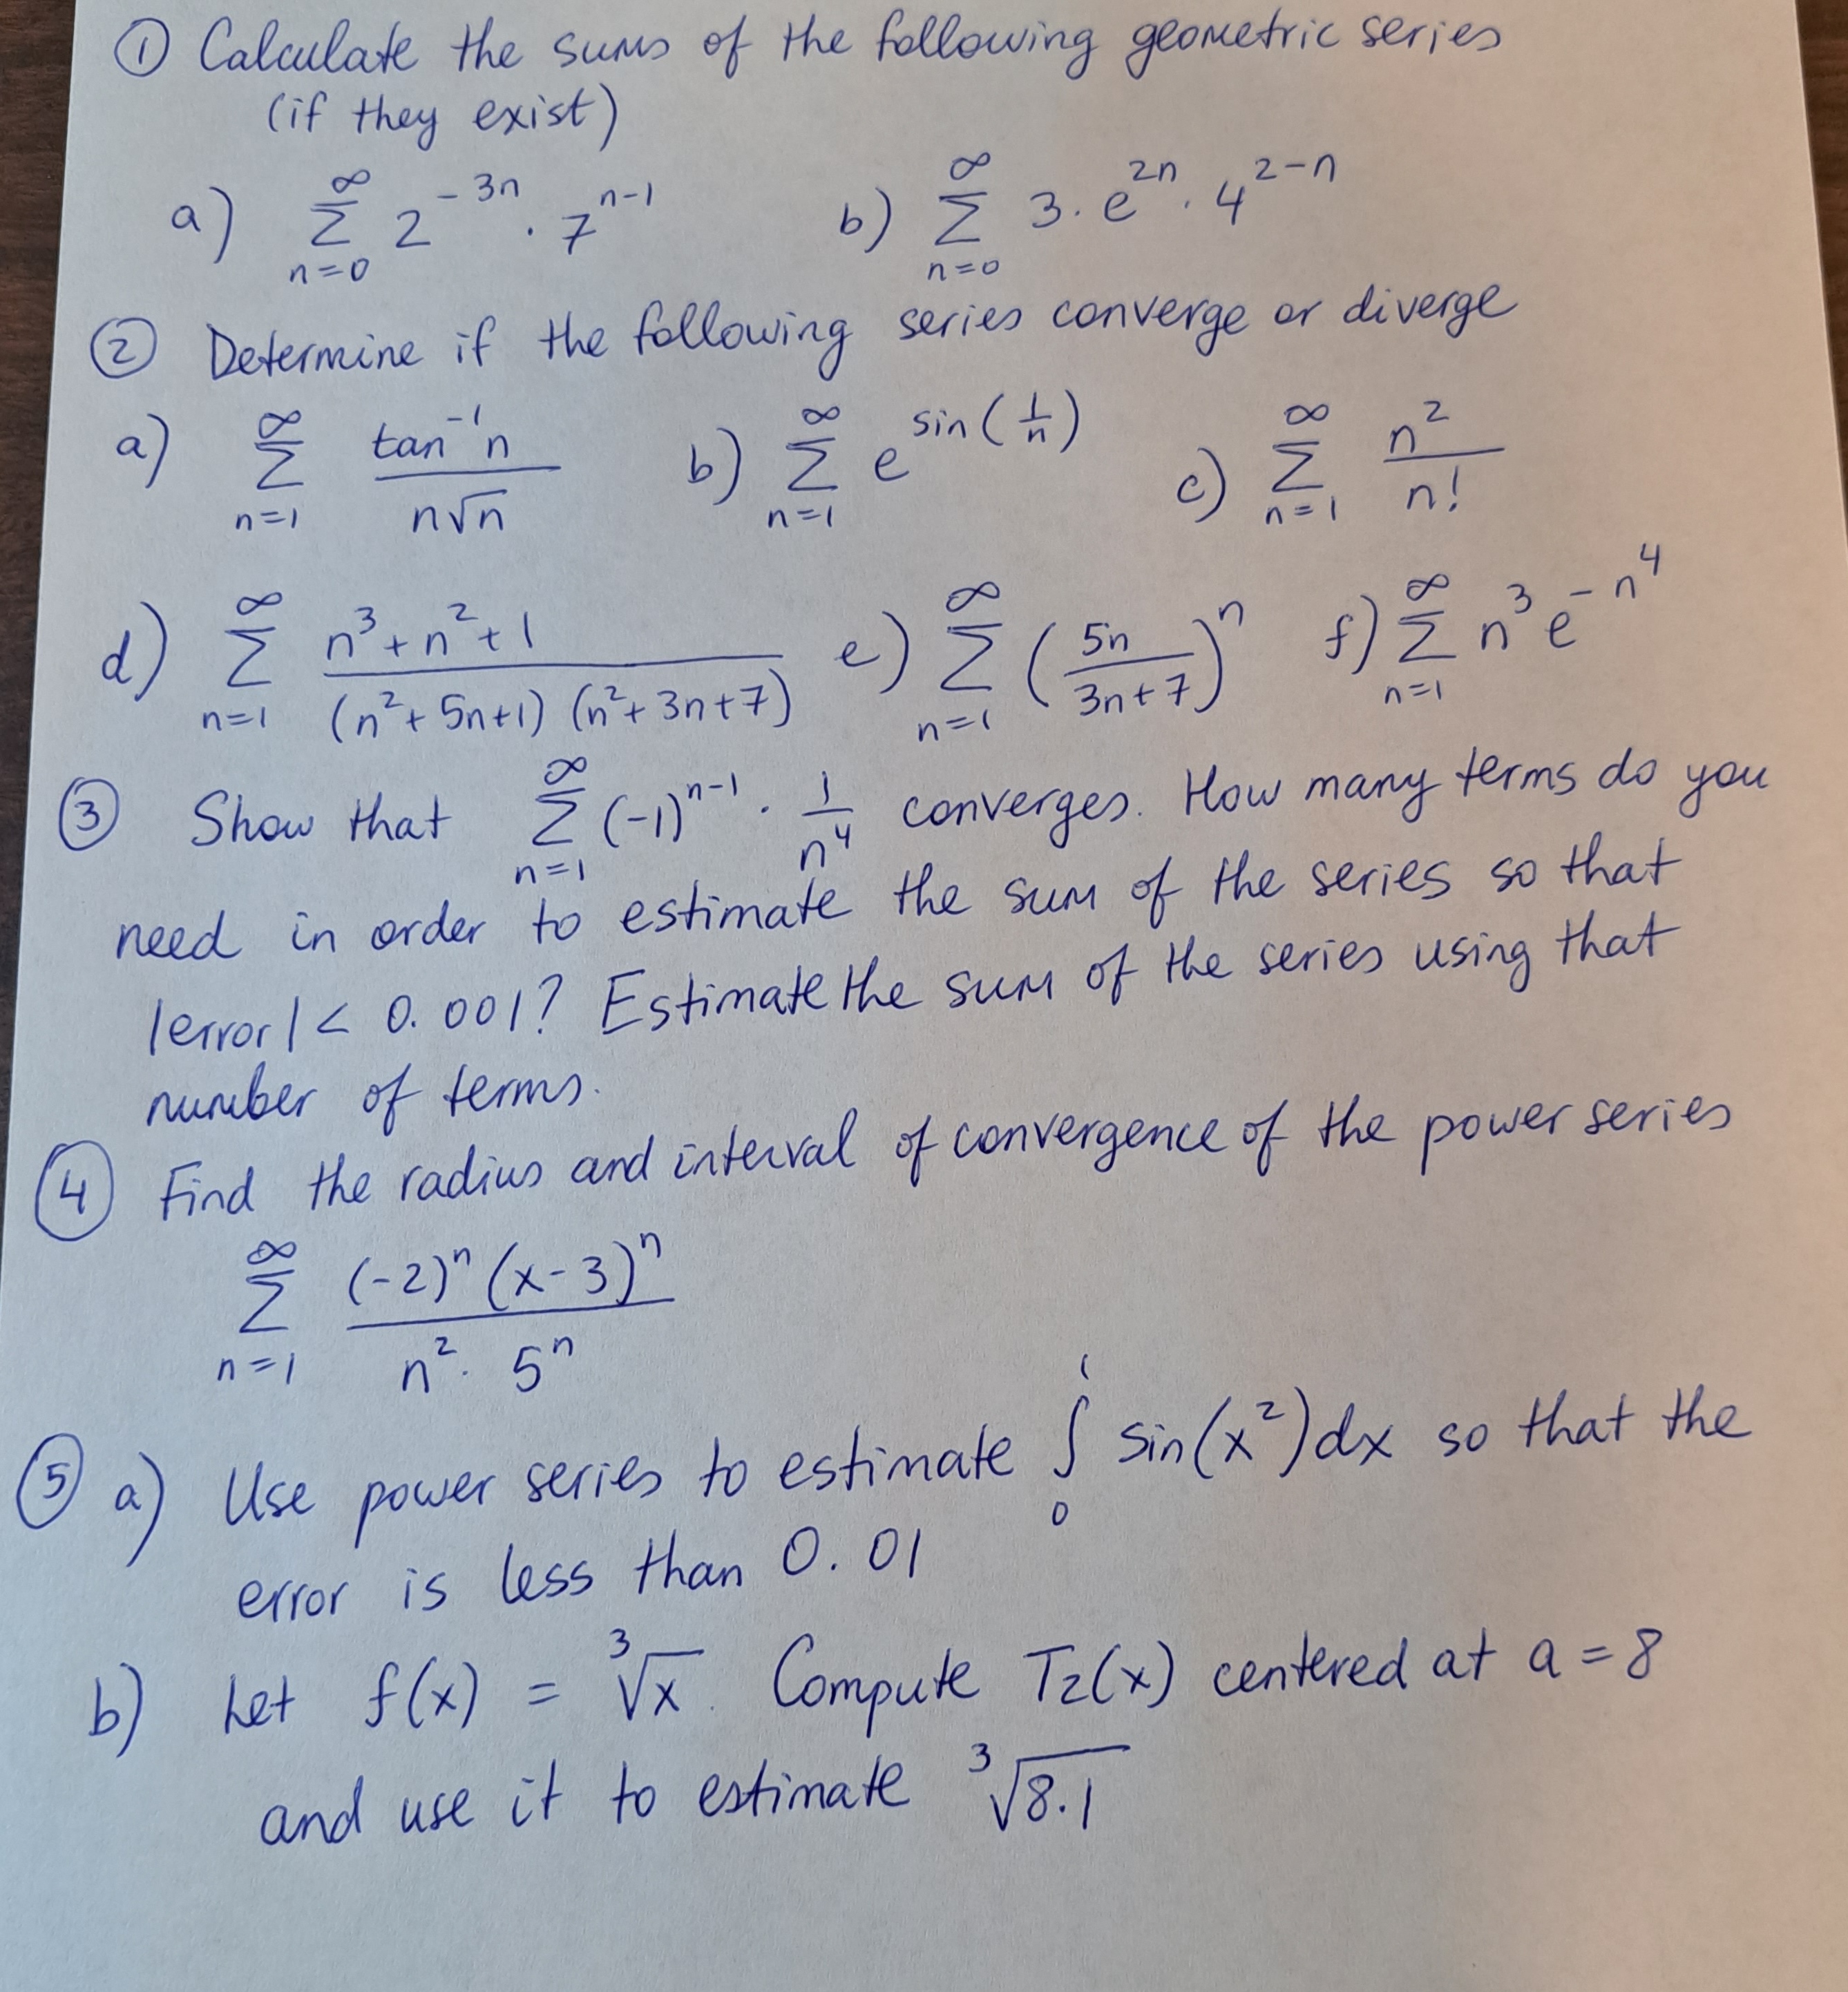 ① Calculate the sums of the following geometric series
(if they exist)
a) ∑_{n=0}^{∞} 2^{-3n} · 7^{n-1} b) ∑_{n=0}^{∞} 3 · e^{2n} · 4^{2-n}
② Determine if the following series converge or diverge
a) ∑_{n=1}^{∞} \frac{tan^{-1} n}{n√n} b) ∑_{n=1}^{∞} e^{sin(\frac{1}{n})} c) ∑_{n=1}^{∞} \frac{n^2}{n!}
d) ∑_{n=1}^{∞} \frac{n^3+n^2+1}{(n^2+5n+1)(n^2+3n+7)} e) ∑_{n=1}^{∞} (\frac{5n}{3n+7})^n f) ∑_{n=1}^{∞} n^3 e^{-n^4}
③ Show that ∑_{n=1}^{∞} (-1)^{n-1} · \frac{1}{n^4} converges. How many terms do you
need in order to estimate the sum of the series so that
|error| < 0.001? Estimate the sum of the series using that
number of terms.
④ Find the radius and interval of convergence of the power series
∑_{n=1}^{∞} \frac{(-2)^n (x-3)^n}{n^2 · 5^n}
⑤ a) Use power series to estimate ∫_0^1 sin(x^2)dx so that the
error is less than 0.01
b) Let f(x) = ∛x. Compute T_2(x) centered at a = 8
and use it to estimate ∛8.1